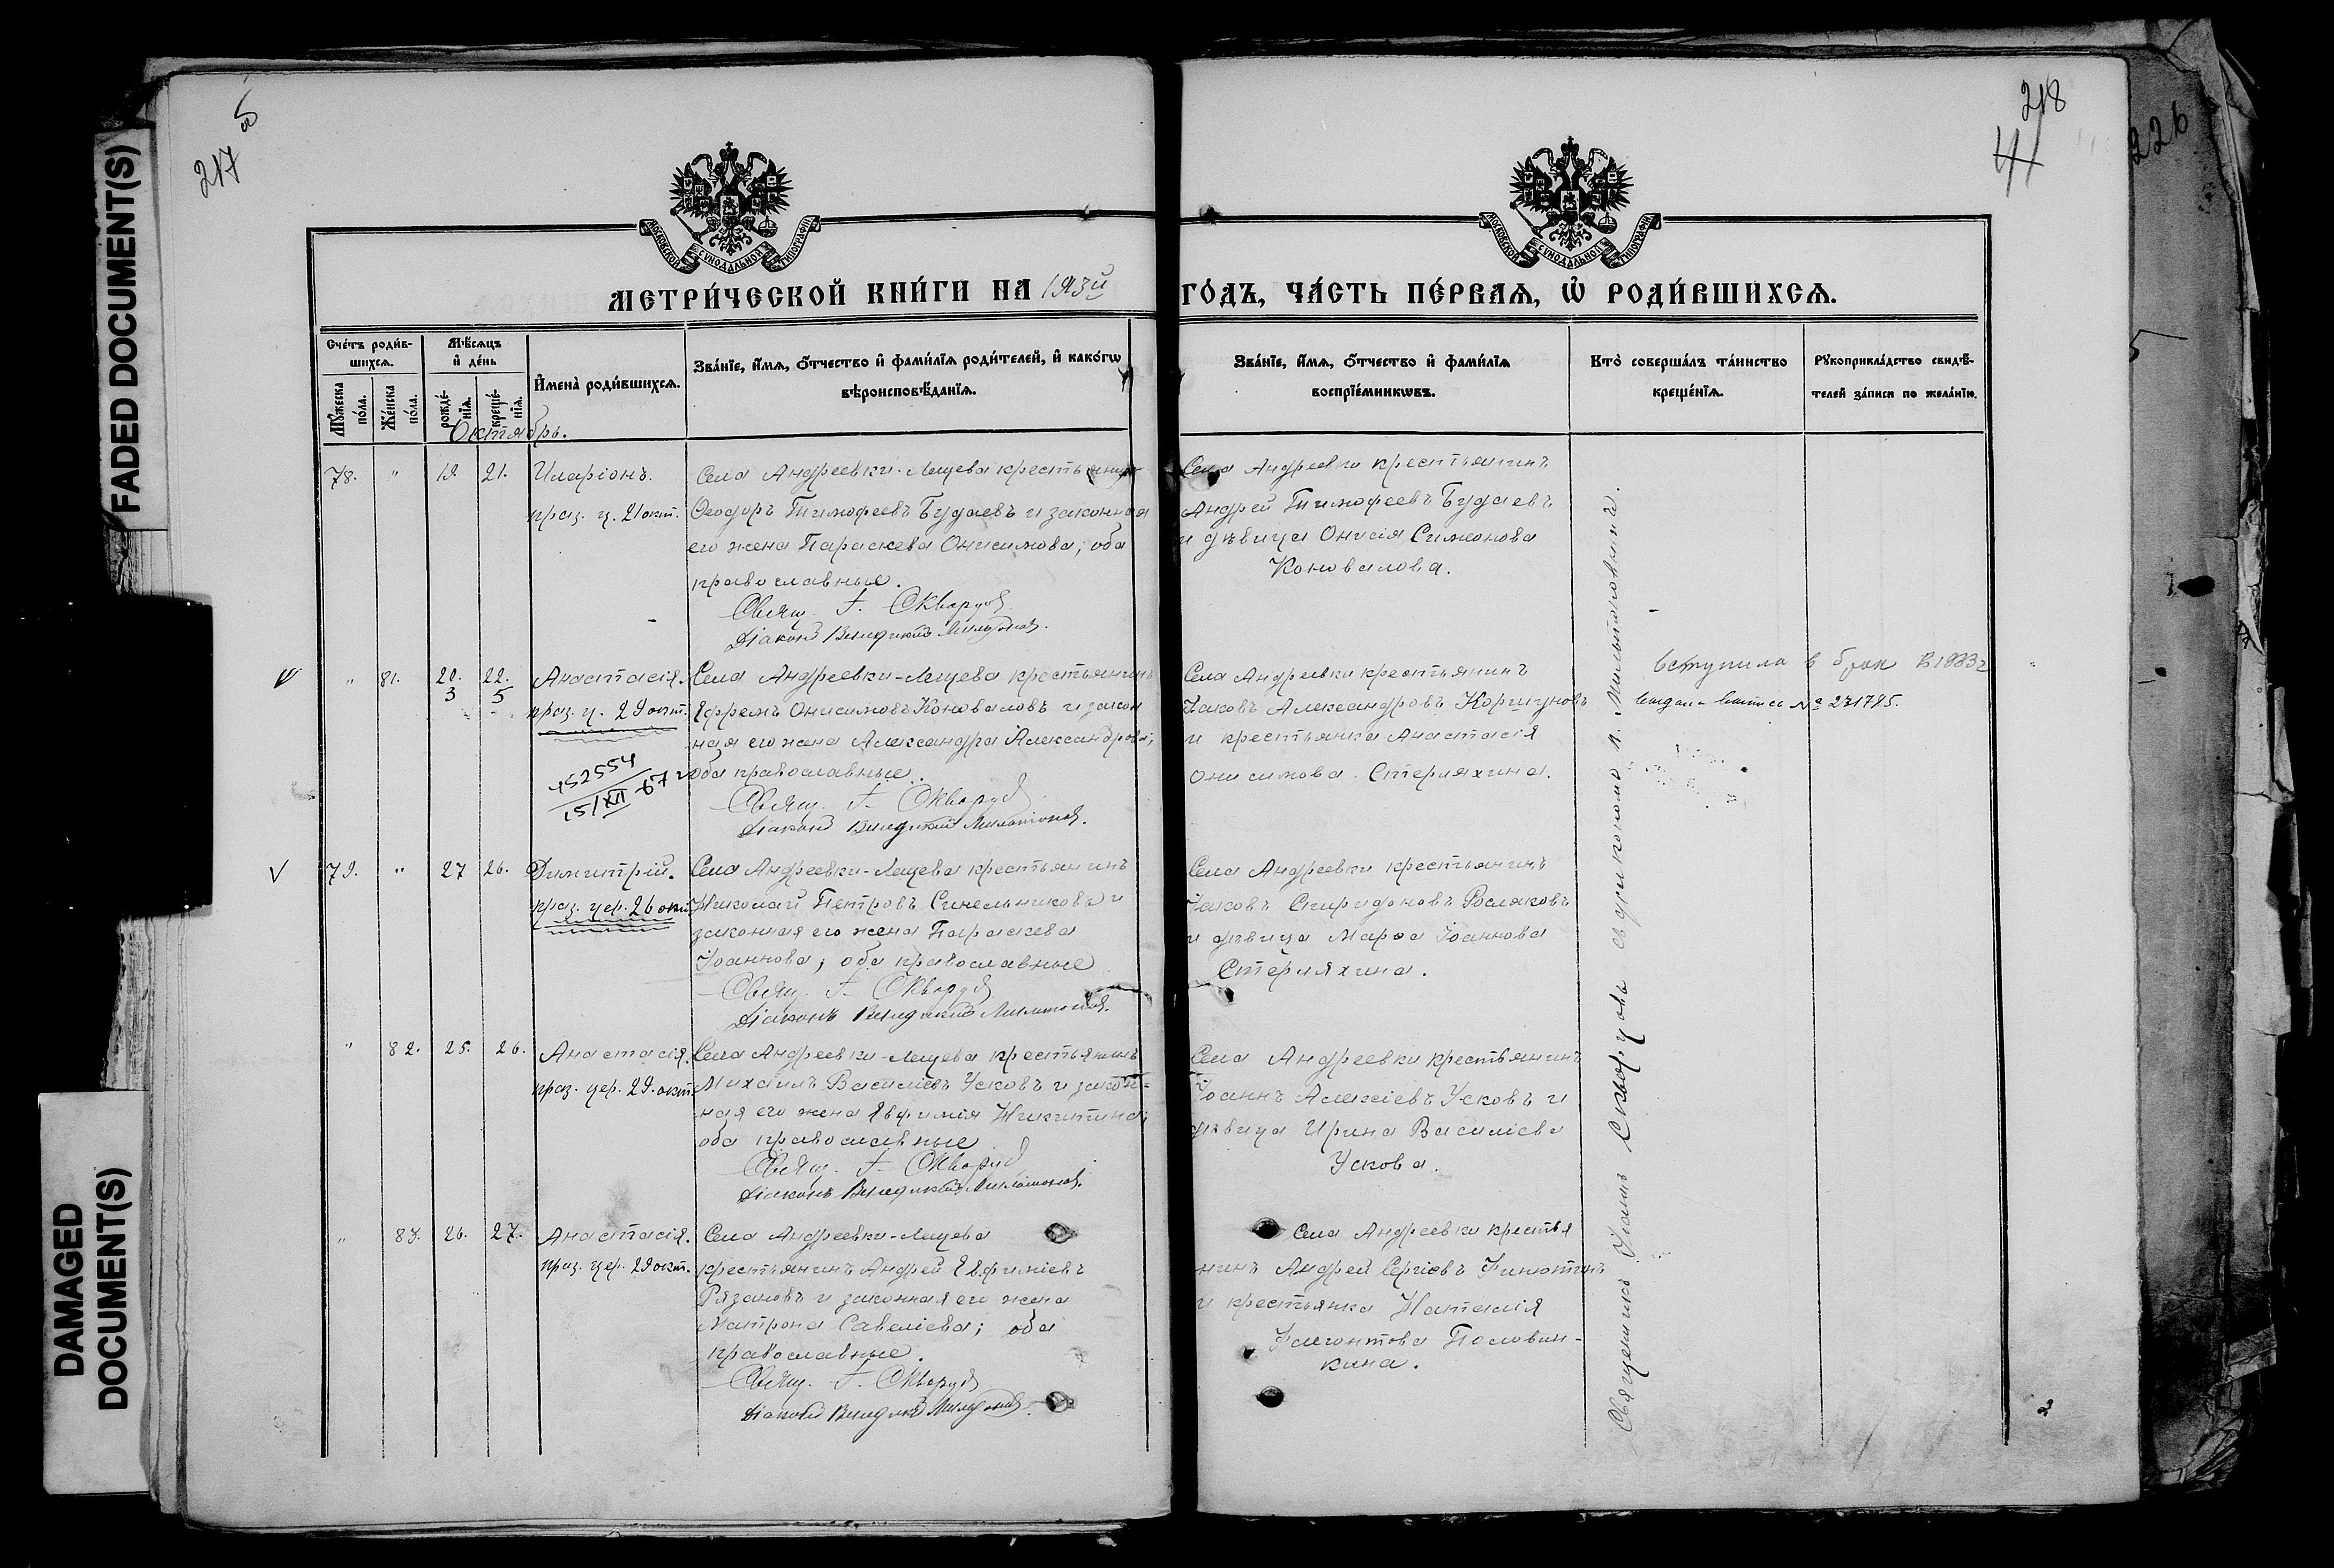 FADED DOCUMENT(S)
DAMAGED
DOCUMENT(S)
217
218
226
МОСКОВСКОЙ СѴНОДАЛЬНОЙ ТИПОГРАФІИ
МОСКОВСКОЙ СѴНОДАЛЬНОЙ ТИПОГРАФІИ
МЕТРИ́ЧЕСКОЙ КНИ́ГИ НА
ГО́ДЪ, ЧА́СТЬ ПЕ́РВАѦ, Ѡ҆ РОДИ́ВШИХСѦ.
Сче́тъ роди́в-
шихсѧ.
Мꙋ́жеска
по́ла.
Же́нска
по́ла.
Мѣ́сѧцъ
и҆ де́нь
рожде́-
нїѧ.
креще́-
нїѧ.
И҆мена̀ роди́вшихсѧ.
Зва́нїе, и҆́мѧ, ѻ҆́тчество и҆ фами́лїѧ роди́телей, и҆ како́гѡ
вѣроисповѣ́данїѧ.
Зва́нїе, и҆́мѧ, ѻ҆́тчество и҆ фами́лїѧ
воспрїе́мникѡвъ.
Кто̀ соверша́лъ та́инство
креще́нїѧ.
Рꙋкоприкла́дство свидѣ́-
телей за́писи по жела́нїю.
Октябрь.
78. " 19. 21. Иларіонъ.
праз. ц. 21 окт.
Села Андреевки-Лещева крестьянинъ
Ѳеодоръ Тимофеевъ Будаевъ и законная
его жена Параскева Онисимова; оба
православные.
Свящ. І. Скворцов
Діаконъ Венедиктъ Милотонов.
Села Андреевки крестьянинъ
Андрей Тимофеевъ Будаевъ
и дѣвица Онисія Симеонова
Коновалова.
" 81. 20. 22. Анастасія.
3 5
праз. ц. 29 окт.
152554
15/XII-67
Села Андреевки-Лещева крестьянинъ
Ефремъ Онисимовъ Коноваловъ и закон
ная его жена Александра Александрова;
оба православные.
Свящ. І. Скворцов
Діаконъ Венедиктъ Милотонов.
Села Андреевки крестьянинъ
Іаковъ Александровъ Коршуновъ
и крестьянка Анастасія
Онисимова Стерляхина.
Вступила в брак
№ 231785.
79. " 27 26. Димитрій.
праз. цер. 26 окт.
Села Андреевки-Лещева крестьянинъ
Николай Петровъ Синельниковъ и
законная его жена Параскева
Іоаннова; оба православные
Свящ. І. Скворцов
Діаконъ Венедиктъ Милотонов.
Села Андреевки крестьянинъ
Іаковъ Спиридоновъ Росляковъ
и дѣвица Марѳа Іоаннова
Стерляхина.
" 82. 25. 26. Анастасія.
праз. цер. 29. окт.
Села Андреевки-Лещева крестьянинъ
Михаилъ Василіевъ Усковъ и закон-
ная его жена Евфимія Никитина;
оба православные
Свящ. І. Скворцов
Діаконъ Венедиктъ Милотонов.
Села Андреевки крестьянинъ
Іоаннъ Алексіевъ Усковъ и
дѣвица Ирина Василіева
Ускова.
" 83. 26. 27. Анастасія.
праз. цер. 29 окт.
Села Андреевки-Лещева
крестьянинъ Андрей Евфиміевъ
Рязановъ и законная его жена
Матрона Савеліева; оба
православные.
Свящ. І. Скворцов
Діаконъ Венедиктъ Милотонов.
Села Андреевки крестья
нинъ Андрей Сергіевъ
и крестьянка Наталія
Половин-
кина.
Священникъ Іоаннъ Скворцовъ съ діакономъ